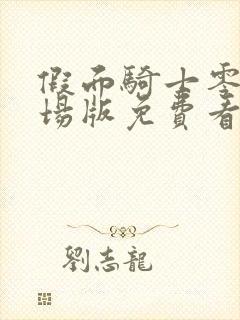 假面騎士零
場版免費看
劉志龍